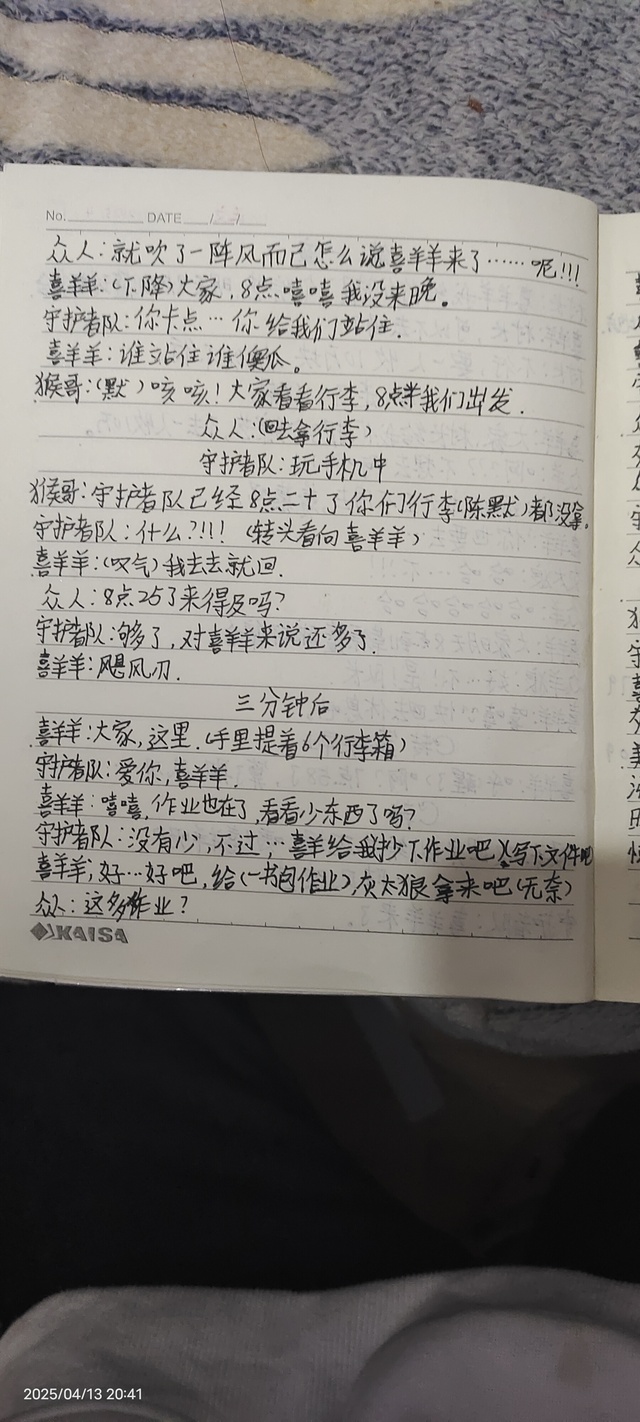 No. DATE / /
众人:就吹了一阵风而已怎么说喜羊羊来了……呢!!!
喜羊羊:(下降)大家,8点嘻嘻我没来晚。
守护者队:你卡点…你给我们站住.
喜羊羊:谁站住谁傻瓜。
猴哥:(默)咳咳!大家看看行李,8点半我们出发.
众人:(回去拿行李)
守护者队:玩手机中
猴哥:守护者队已经8点二十了你们行李(陈默)都没拿。
守护者队:什么?!!!(转头看向喜羊羊)
喜羊羊:(叹气)我去去就回.
众人:8点25了来得及吗?
守护者队:够了,对喜羊羊来说还多了.
喜羊羊:飓风刃.
三分钟后
喜羊羊:大家,这里.(手里提着6个行李箱)
守护者队:爱你,喜羊羊.
喜羊羊:嘻嘻,作业也在了,看看少东西了吗?
守护者队:没有少,不过,…喜羊给我抄下作业吧 写下文件吧
喜羊羊;好…好吧,给(一书包作业),灰太狼拿来吧(无奈)
众人:这多作业?
KAISA
2025/04/13 20:41